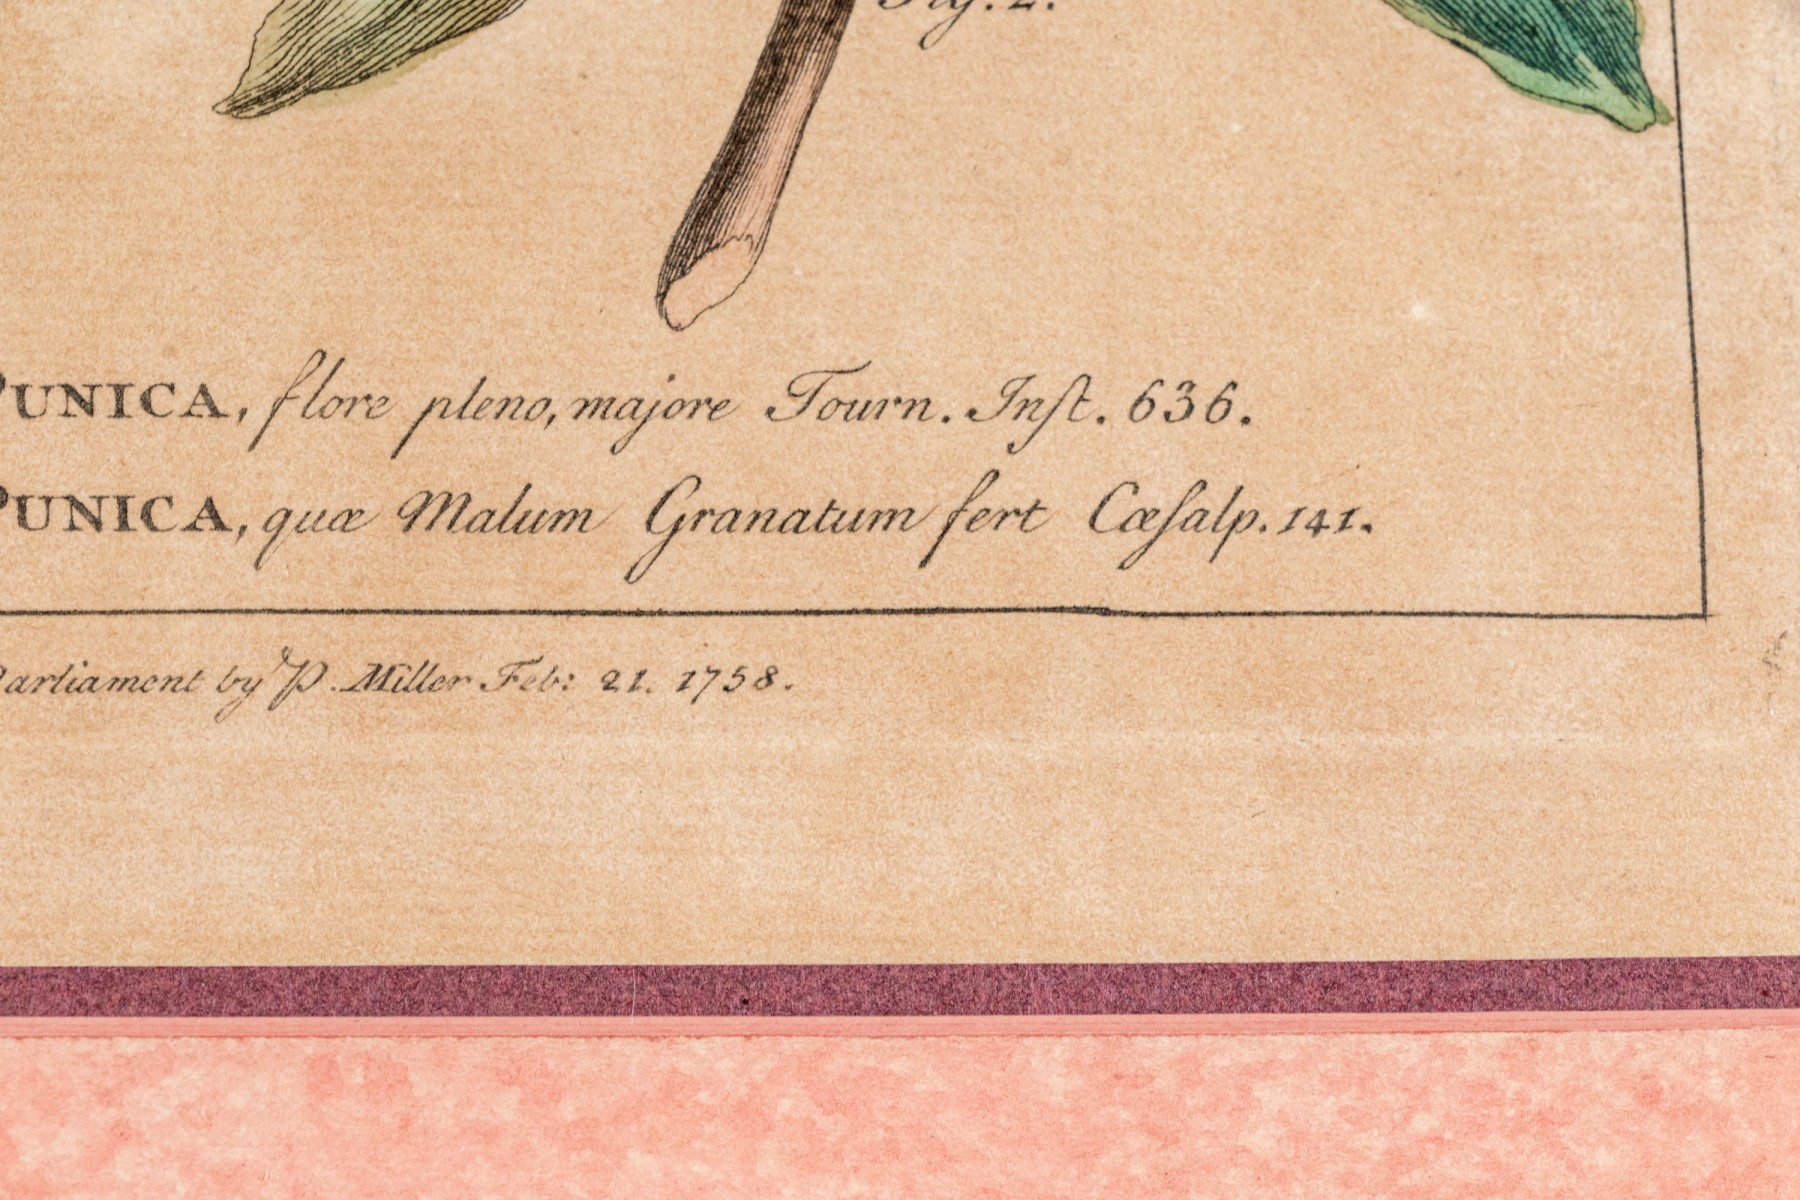 Fig. 2.
PUNICA, flore pleno, majore Tourn. Inſt. 636.
PUNICA, quæ Malum Granatum fert Cæſalp. 141.
Parliament by P. Miller Feb: 21. 1758.